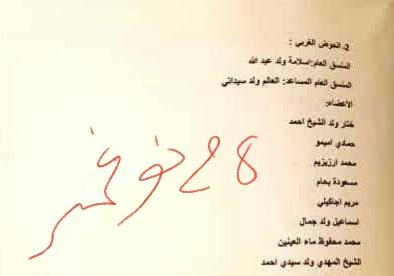 2. الحوض الغربي :
المنسق العام:اسلامة ولد عبد الله
المنسق العام المساعد: العالم ولد سيداتي
الأعضاء:
ختار ولد الشيخ احمد
حمادي اميمو
محمد ارزيزيم
مسعودة بحام
مريم اجاكيلي
اسماعيل ولد جمال
محمد محفوظ ماء العينين
الشيخ المهدي ولد سيدي احمد
28 نوفمبر